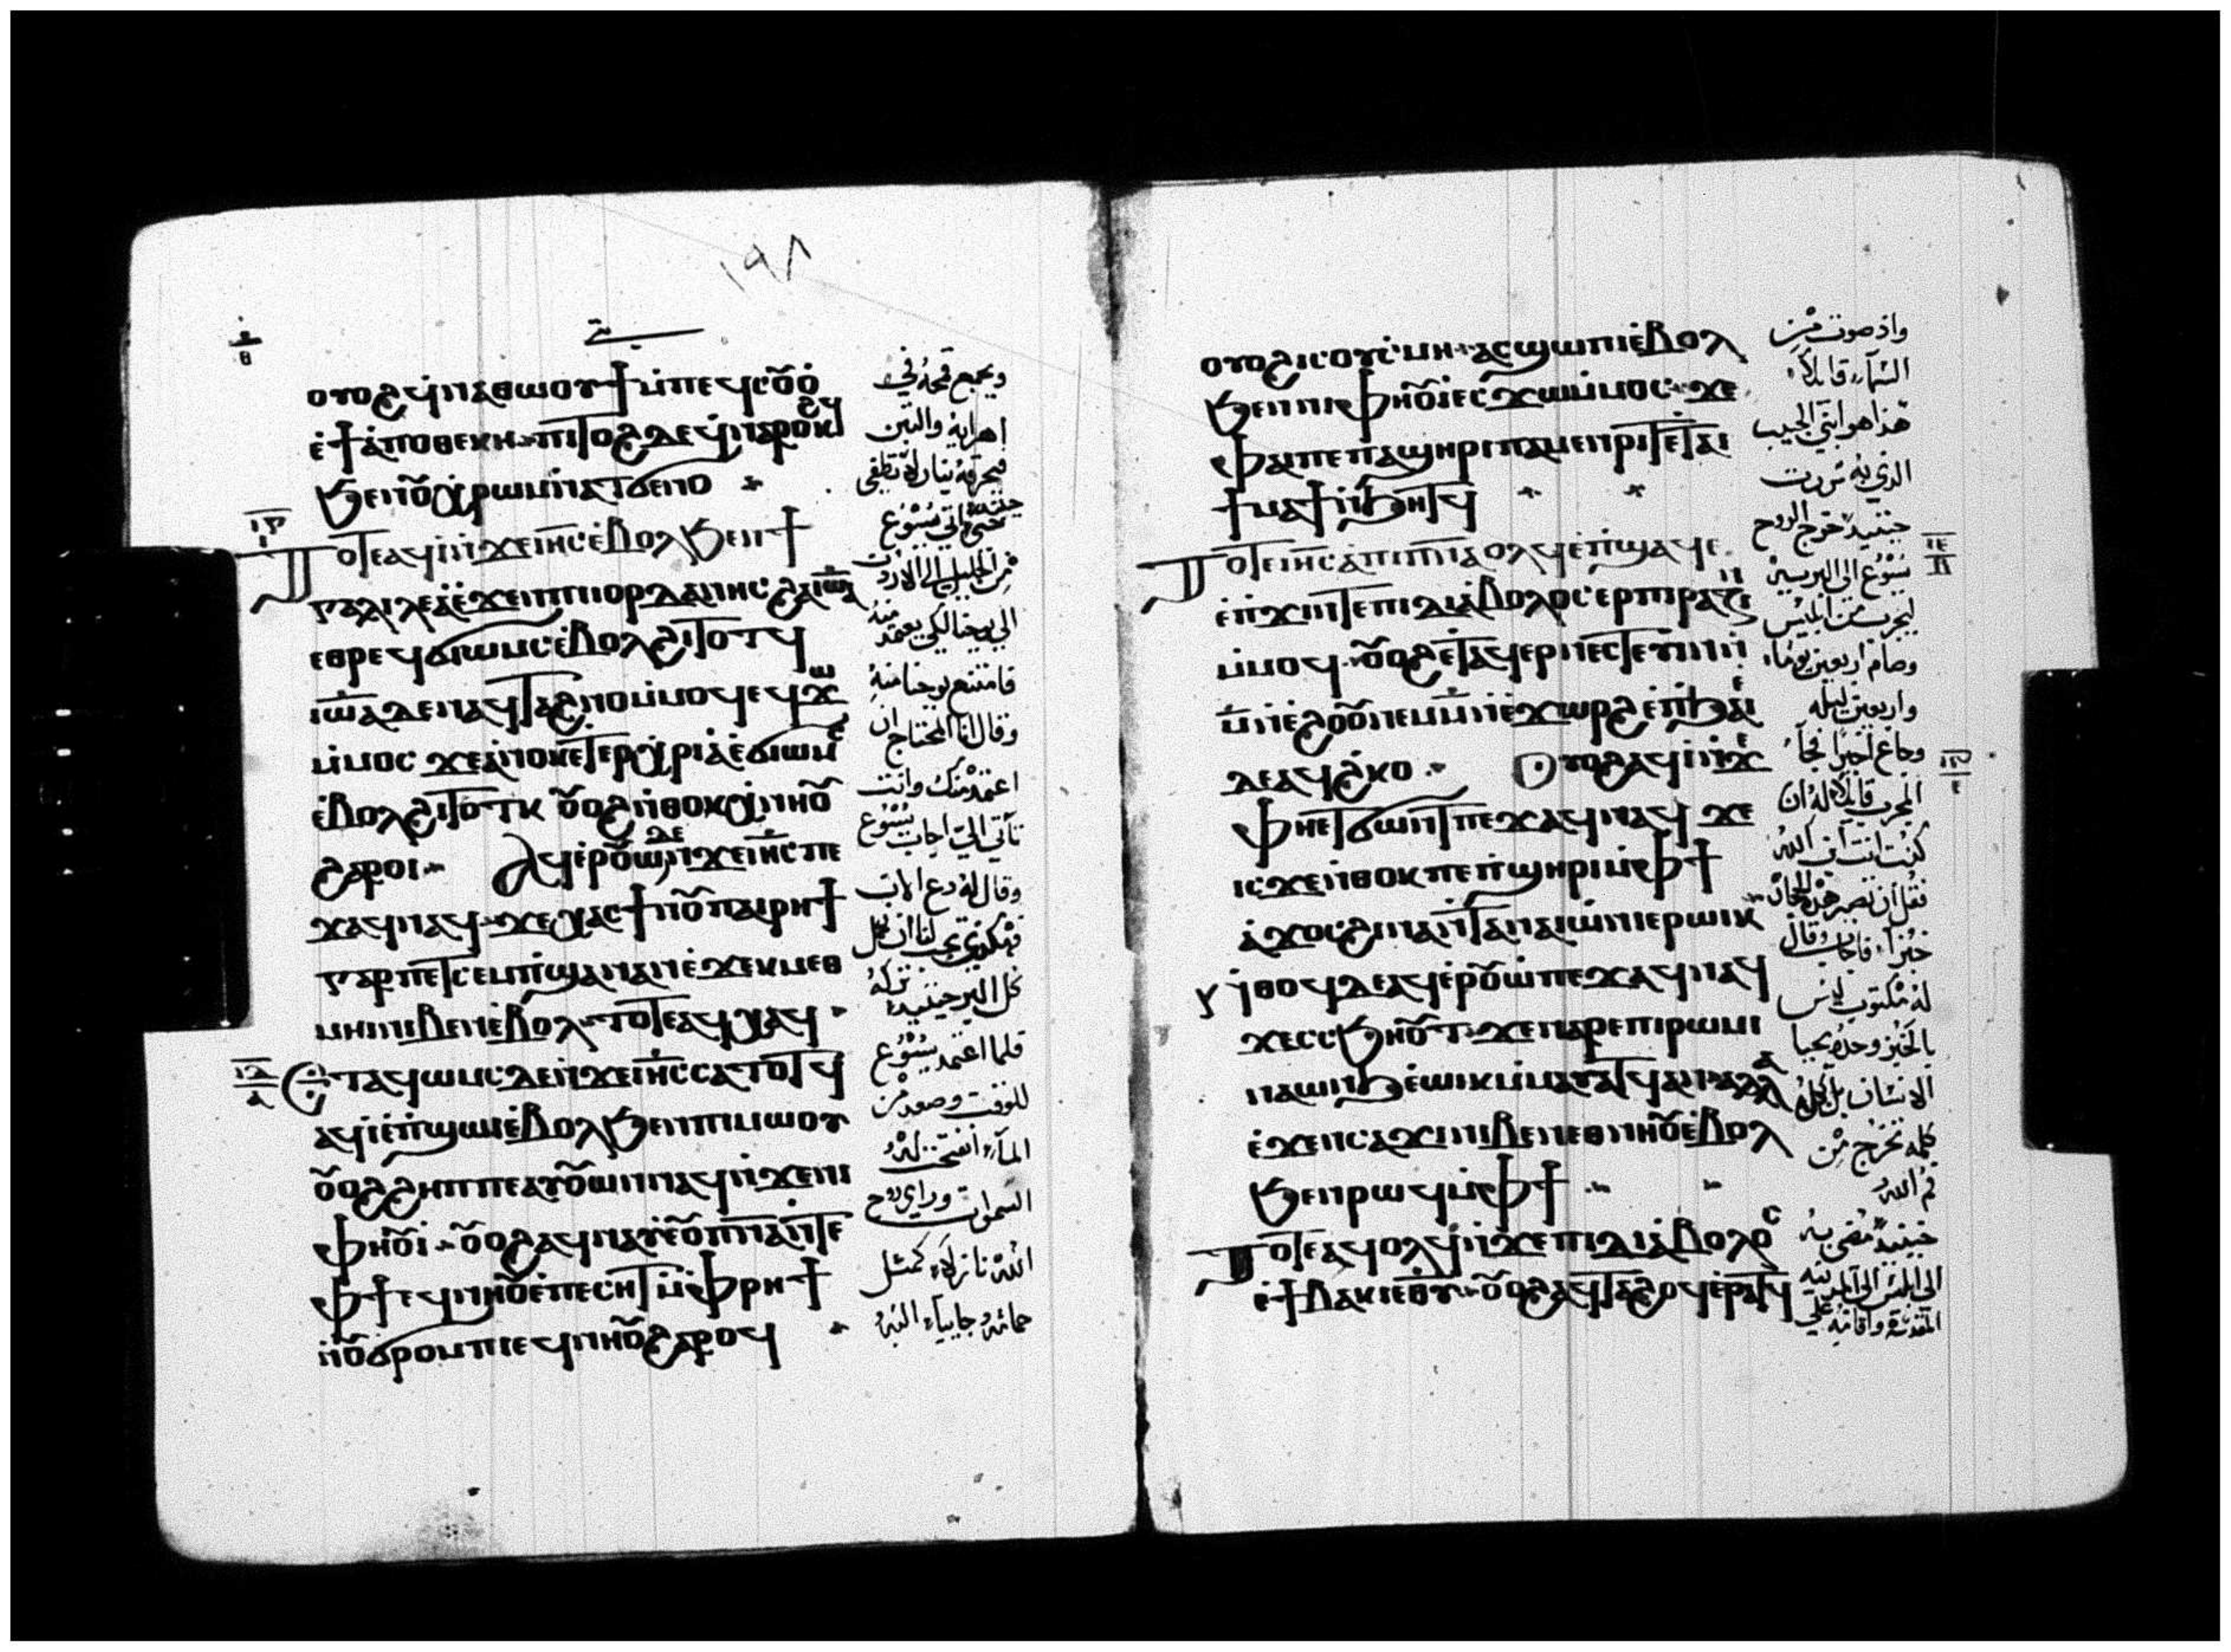 ١٩٨
ⲟⲩⲟϩ ϥⲛⲁⲑⲱⲟⲩϯ ⲙ̇ⲡⲉϥⲥⲟ̅ⲟ̇
ⲉ̇ϯⲁ̇ⲡⲟⲑⲏⲕⲏ ⲡⲓⲧⲟϩ ⲇⲉ ϥⲛⲁⲣⲟⲕϩϥ
ϧⲉⲛⲟ̅ⲭⲣⲱⲙ ⲛ̇ⲛⲁⲧϭⲉⲛⲟ
ⲧⲟⲧⲉ ⲁϥⲓ̇ ⲛ̇ϫⲉⲓⲏ̅ⲥ ⲉ̇ⲃⲟⲗ ϧⲉⲛϯ
ⲅⲁⲗⲓⲗⲉⲁ̇ ⲉ̇ϫⲉⲛⲡⲓⲓⲟⲣⲇⲁⲛⲏⲥ ϩⲁⲓⲱ̅ⲁ
ⲉⲑⲣⲉϥϭⲓⲱⲙⲥ ⲉ̇ⲃⲟⲗϩⲓⲧⲟⲧϥ
ⲓⲱ̅ⲁ ⲇⲉ ⲛⲁϥⲧⲁϩⲛⲟ ⲙ̇ⲙⲟϥ ⲉϥϫⲱ
ⲙ̇ⲙⲟⲥ ϫⲉⲁ̇ⲛⲟⲕ ⲉⲧⲉⲣⲭⲣⲓⲁ̇ ⲉ̇ϭⲓⲱⲙⲥ
ⲉ̇ⲃⲟⲗϩⲓⲧⲟⲧⲕ ⲟ̅ⲟϩ ⲛ̇ⲑⲟⲕ ⲭⲛⲏⲟ̅
ϩⲁⲣⲟⲓ ⲁϥⲉⲣⲟ̅ⲱ̇ ⲇⲉ ⲛ̇ϫⲉⲓⲏ̅ⲥ ⲡⲉ
ϫⲁϥ ⲛⲁϥ ϫⲉⲭⲁⲥ ϯⲛⲟ̅ ⲡⲁⲓⲣⲏϯ
ⲅⲁⲣ ⲡⲉⲧⲥⲉⲙⲡ̇ϣⲁ ⲛⲁⲛ ⲉ̇ϫⲉⲕⲙⲉⲑ
ⲙⲏⲓ ⲛⲓⲃⲉⲛ ⲉ̇ⲃⲟⲗ ⲧⲟⲧⲉ ⲁϥⲭⲁϥ
ⲉⲧⲁϥⲱⲙⲥ ⲇⲉ ⲛ̇ϫⲉⲓⲏ̅ⲥ ⲥⲁⲧⲟⲧϥ
ⲁϥⲓ̇ ⲉ̇ⲡ̇ϣⲱⲓ ⲉ̇ⲃⲟⲗ ϧⲉⲛⲡⲓⲙⲱⲟⲩ
ⲟ̅ⲟϩ ϩⲏⲡⲡⲉ ⲁⲩⲟ̅ⲱⲛ ⲛⲁϥ ⲛ̇ϫⲉⲛⲓ
ⲫⲏⲟ̅ⲓ̇ ⲟ̅ⲟϩ ⲁϥⲛⲁⲩ ⲉ̇ⲟ̅ⲡ̅ⲛ̅ⲁ ⲛ̇ⲧⲉ
ⲫϯ ⲉϥⲛⲏⲟ̅ ⲉ̇ⲡⲉⲥⲏⲧ ⲙ̇ⲫⲣⲏϯ
ⲛ̇ⲟ̅ϭⲣⲟⲙⲡⲓ ⲉϥⲛⲏⲟ̅ ϩⲁⲣⲟϥ
ويجمع قمحه في
اهرايه والتبن
فيحرقه بنار لا تطفى
حينئذ اتي يسوع
من الجليل الى الاردن
الي يوحنا لكي يعتمد منه
فامتنع يوحنا منه
وقال انا المحتاج ان
اعتمد منك وانت
تأتي الي اجاب يسوع
وقال له دع الان
كل البر حينئذ تركه
فلما اعتمد يسوع
للوقت وصعد من
الماء انفتحت له
السموات وراي روح
الله نازلاً كمثل
حمامه وجايياً اليه
ⲟⲩⲟϩ ⲓⲥ ⲟⲩⲥ̇ⲙⲏ ⲁⲥϣⲱⲡⲓ ⲉ̇ⲃⲟⲗ
ϧⲉⲛⲛⲓⲫⲏⲟ̅ⲓ̇ ⲉⲥϫⲱ ⲙ̇ⲙⲟⲥ ϫⲉ
ⲫⲁⲓ ⲡⲉ ⲡⲁϣⲏⲣⲓ ⲡⲁⲙⲉⲛⲣⲓⲧ ⲉ̇ⲧⲁⲓ
ϯⲙⲁϯ ⲛ̇ϧⲏⲧϥ
ⲧⲟⲧⲉ ⲓⲏ̅ⲥ ⲁ̇ⲡⲓⲡ̅ⲛ̅ⲁ ⲟⲗϥ ⲉ̇ⲡ̇ϣⲁϥⲉ
ⲉ̇ⲡ̇ϫⲓⲛⲧⲉⲡⲓⲇⲓⲁ̇ⲃⲟⲗⲟⲥ ⲉⲣⲡⲓⲣⲁⲍⲓⲛ
ⲙ̇ⲙⲟϥ ⲟ̅ⲟϩ ⲉ̇ⲧⲁϥⲉⲣⲛⲏⲥⲧⲉⲩⲓⲛ
ⲙ̅ ⲛ̇ⲉ̇ϩⲟⲟ̅ ⲛⲉⲙ ⲙ̅ ⲛ̇ⲉ̇ϫⲱⲣϩ ⲉ̇ⲡ̇ϧⲁⲉ̇
ⲇⲉ ⲁϥϩ̇ⲕⲟ ⲟⲩⲟϩ ⲁϥⲓ̇ ⲛ̇ϫⲉ
ⲫⲏⲉⲧϭⲱⲛⲧ ⲡⲉϫⲁϥ ⲛⲁϥ ϫⲉ
ⲓⲥϫⲉ ⲛ̇ⲑⲟⲕ ⲡⲉ ⲡ̇ϣⲏⲣⲓ ⲙ̇ⲫϯ
ⲁ̇ϫⲟⲥ ϩⲓⲛⲁ ⲛ̇ⲧⲉⲛⲁⲓⲱ̇ⲛⲓ ⲉⲣⲱⲓⲕ
ⲛ̇ⲑⲟϥ ⲇⲉ ⲁϥⲉⲣⲟ̅ⲱ̇ ⲡⲉϫⲁϥ ⲛⲁϥ
ϫⲉ ⲥⲥϧⲏⲟ̅ⲧ ϫⲉⲛⲁⲣⲉⲡⲓⲣⲱⲙⲓ
ⲛⲁⲱⲛϧ ⲉ̇ⲱⲓⲕ ⲙ̇ⲙⲁⲩⲁⲧϥ ⲁⲛ ⲁⲗⲗⲁ
ⲉ̇ϫⲉⲛⲥⲁϫⲓ ⲛⲓⲃⲉⲛ ⲉⲑⲛⲏⲟ̅ ⲉ̇ⲃⲟⲗ
ϧⲉⲛⲣⲱϥ ⲙ̇ⲫϯ
ⲧⲟⲧⲉ ⲁϥⲟⲗϥ ⲛ̇ϫⲉⲡⲓⲇⲓⲁ̇ⲃⲟⲗⲟⲥ
ⲉ̇ϯⲃⲁⲕⲓ ⲉⲑⲩ ⲟ̅ⲟϩ ⲁϥⲧⲁϩⲟϥ ⲉ̇ⲣⲁⲧϥ
واذ صوت من
السماء قايلاً
هذا هو ابني الحبيب
الذي به سررت
حينئذ خرج الروح
يسوع الى البريه
ليجرب من ابليس
وصام اربعين يوماً
واربعين ليله
وجاع اخيراً فجاء
المجرب قايلاً له ان
كنت انت ابن الله
فقل ان تصير هذه الحجاره
خبزاً فاجاب وقال
له مكتوب ليس
بالخبز وحده يحيا
الانسان بل بكل
كلمه تخرج من
فم الله
حينئذ مضى به
الى ابليس الى المدينه
المقدسه واقامه على